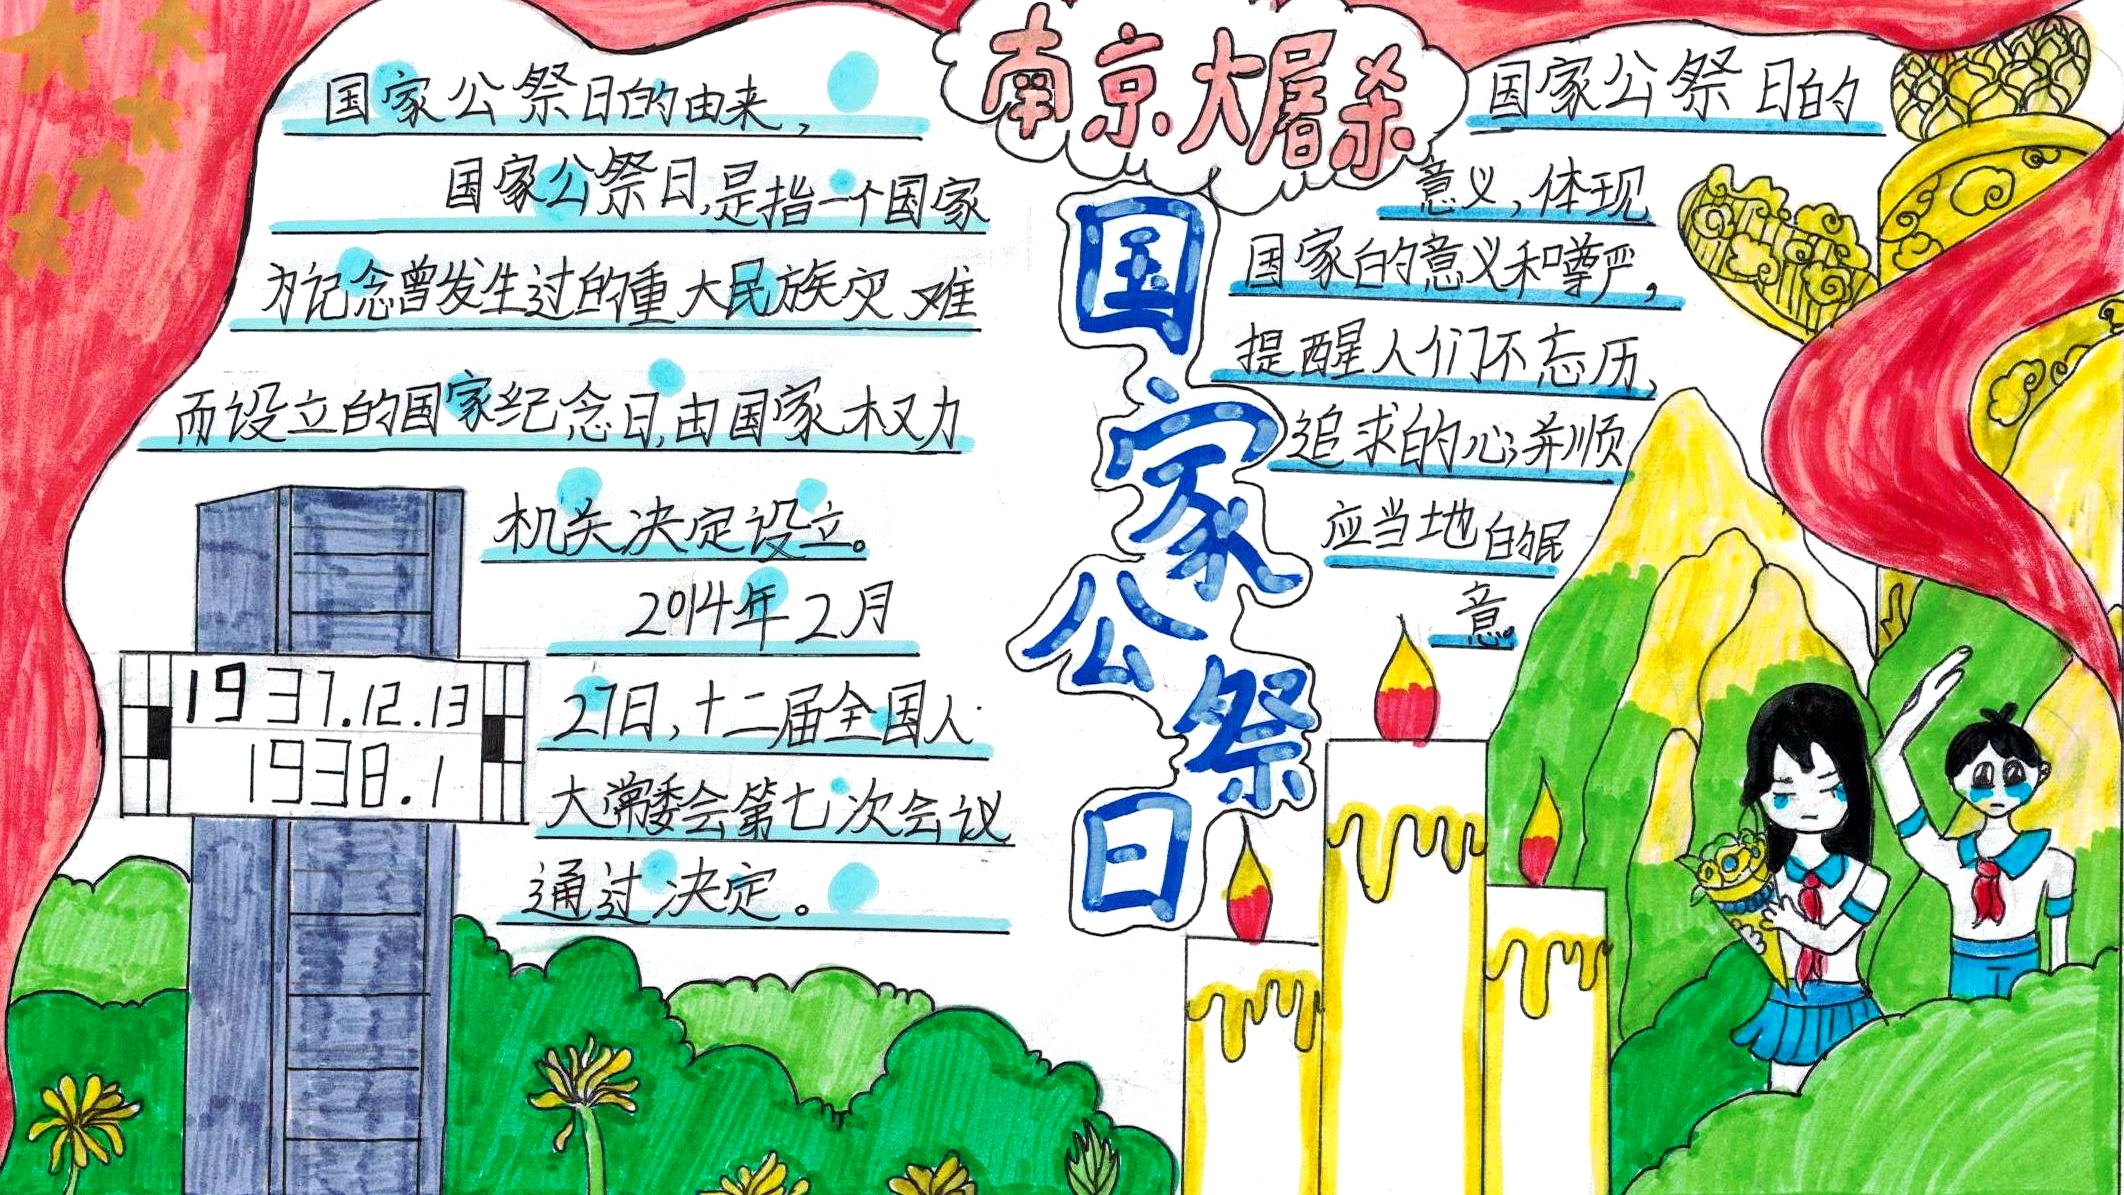 南京大屠杀
国家公祭日
国家公祭日的由来,
国家公祭日,是指一个国家
为记念曾发生过的重大民族灾难
而设立的国家纪念日,由国家权力
机关决定设立。
2014年2月
27日,十二届全国人
大常委会第七次会议
通过决定。
1937.12.13
1938.1
国家公祭日的
意义,体现
国家的意义和尊严,
提醒人们不忘历、
追求的心;并顺
应当地的民
意。